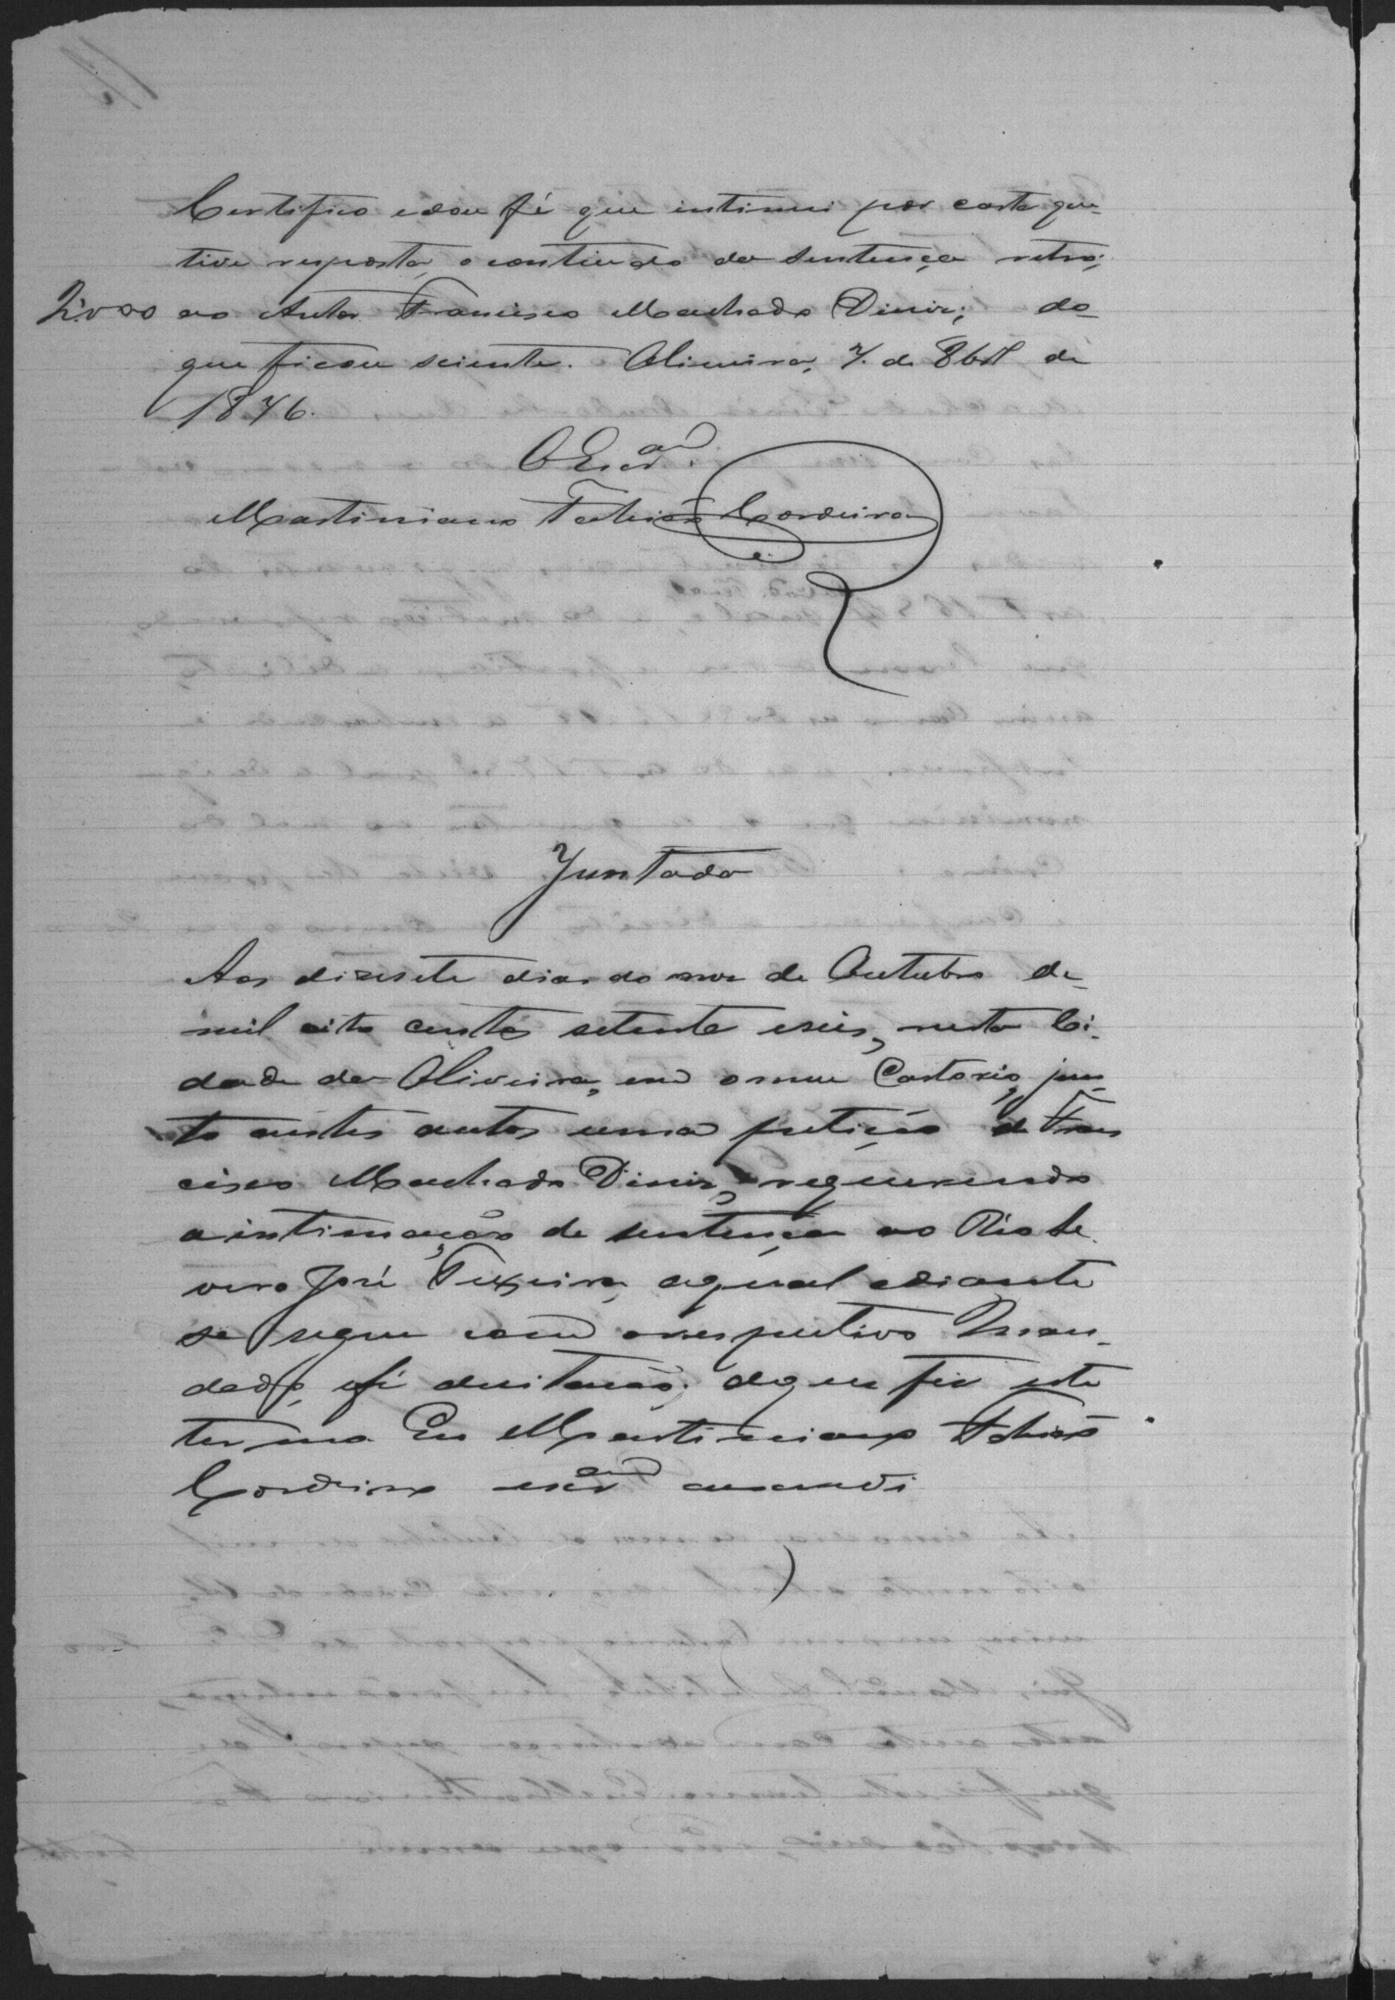 Certifico e dou fé que intimei por carta que
tive resposta, o contiudo da sentença retro,
2:000 ao Autor Francisco Machado Diniz; do
que ficou sciente. Oliveira, 7. de 8br.º de
1876.
O Escr.am
Martiniano Fabião Cordeiro
Juntada
Aos dizesete dias do mez de Outubro de
mil oito centos setenta e seis, nesta Ci-
dade da Oliveira, em o meu Cartorio, jun-
to a estes autos uma petição de Fran
cisco Machado Diniz, requerendo
a intimação de sentença ao Réo Se
vero José Teixeira, a qual adiante
se segue com o respectivo Man-
dado, e fé de citação; do que fiz este
termo. Eu Martiniano Fabião
Cordeiro escr.am escrevi